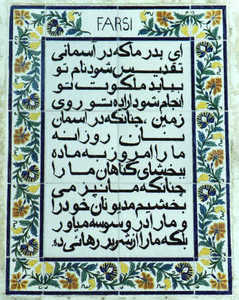 FARSI
ای پدر ما که در آسمانی
تقدیس شود نام تو
بیاید ملکوت تو
انجام شود اراده تو روی
زمین، چنانکه در آسمان
نان روزانه
ما را امروز به ما ده
ببخشای گناهان ما را
چنانکه ما نیز می
بخشیم مدیونان خود را
و ما را در وسوسه میاور
بلکه ما را از شریر رهائی ده